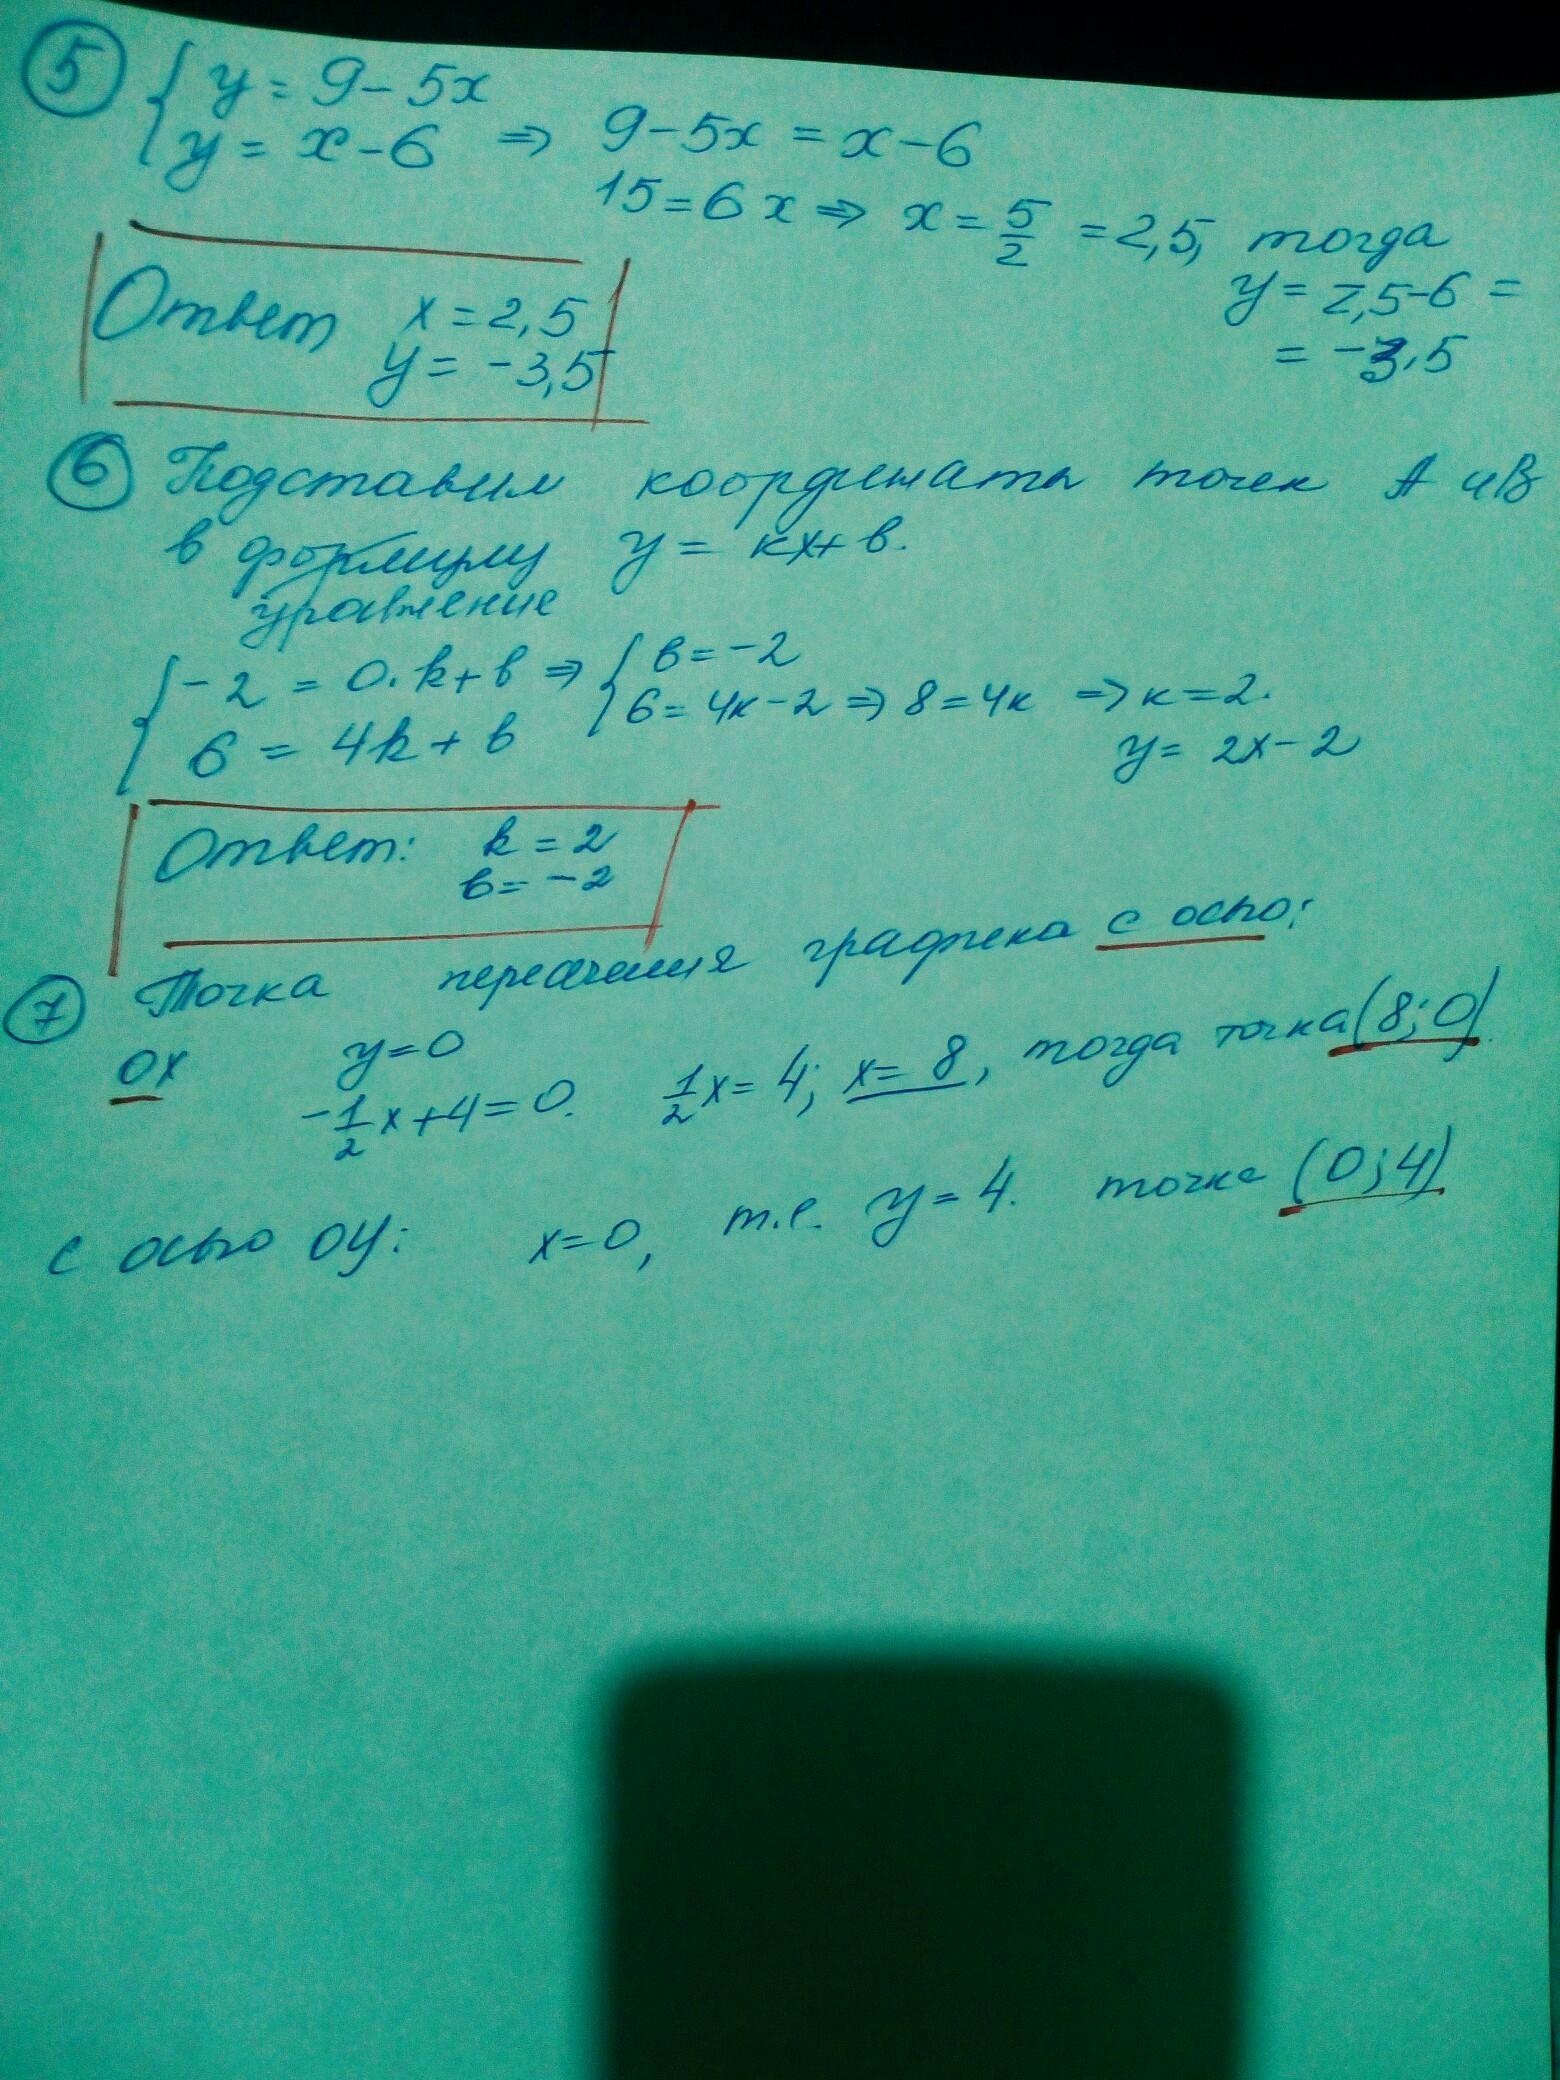 5 { y = 9 - 5x
y = x - 6 ⇒ 9 - 5x = x - 6
15 = 6x ⇒ x = 5/2 = 2,5, тогда
y = 2,5 - 6 =
= -3,5
Ответ x = 2,5
y = -3,5
6 Подставим координаты точек A и B
в формулу y = kx + b.
уравнение
{ -2 = 0·k + b ⇒ { b = -2
6 = 4k + b 6 = 4k - 2 ⇒ 8 = 4k ⇒ k = 2.
y = 2x - 2
Ответ: k = 2
b = -2
7 Точка пересечения графика с осью:
OX y = 0
-1/2 x + 4 = 0. 1/2 x = 4; x = 8, тогда точка (8; 0)
с осью OY: x = 0, т.е. y = 4. точка (0; 4)